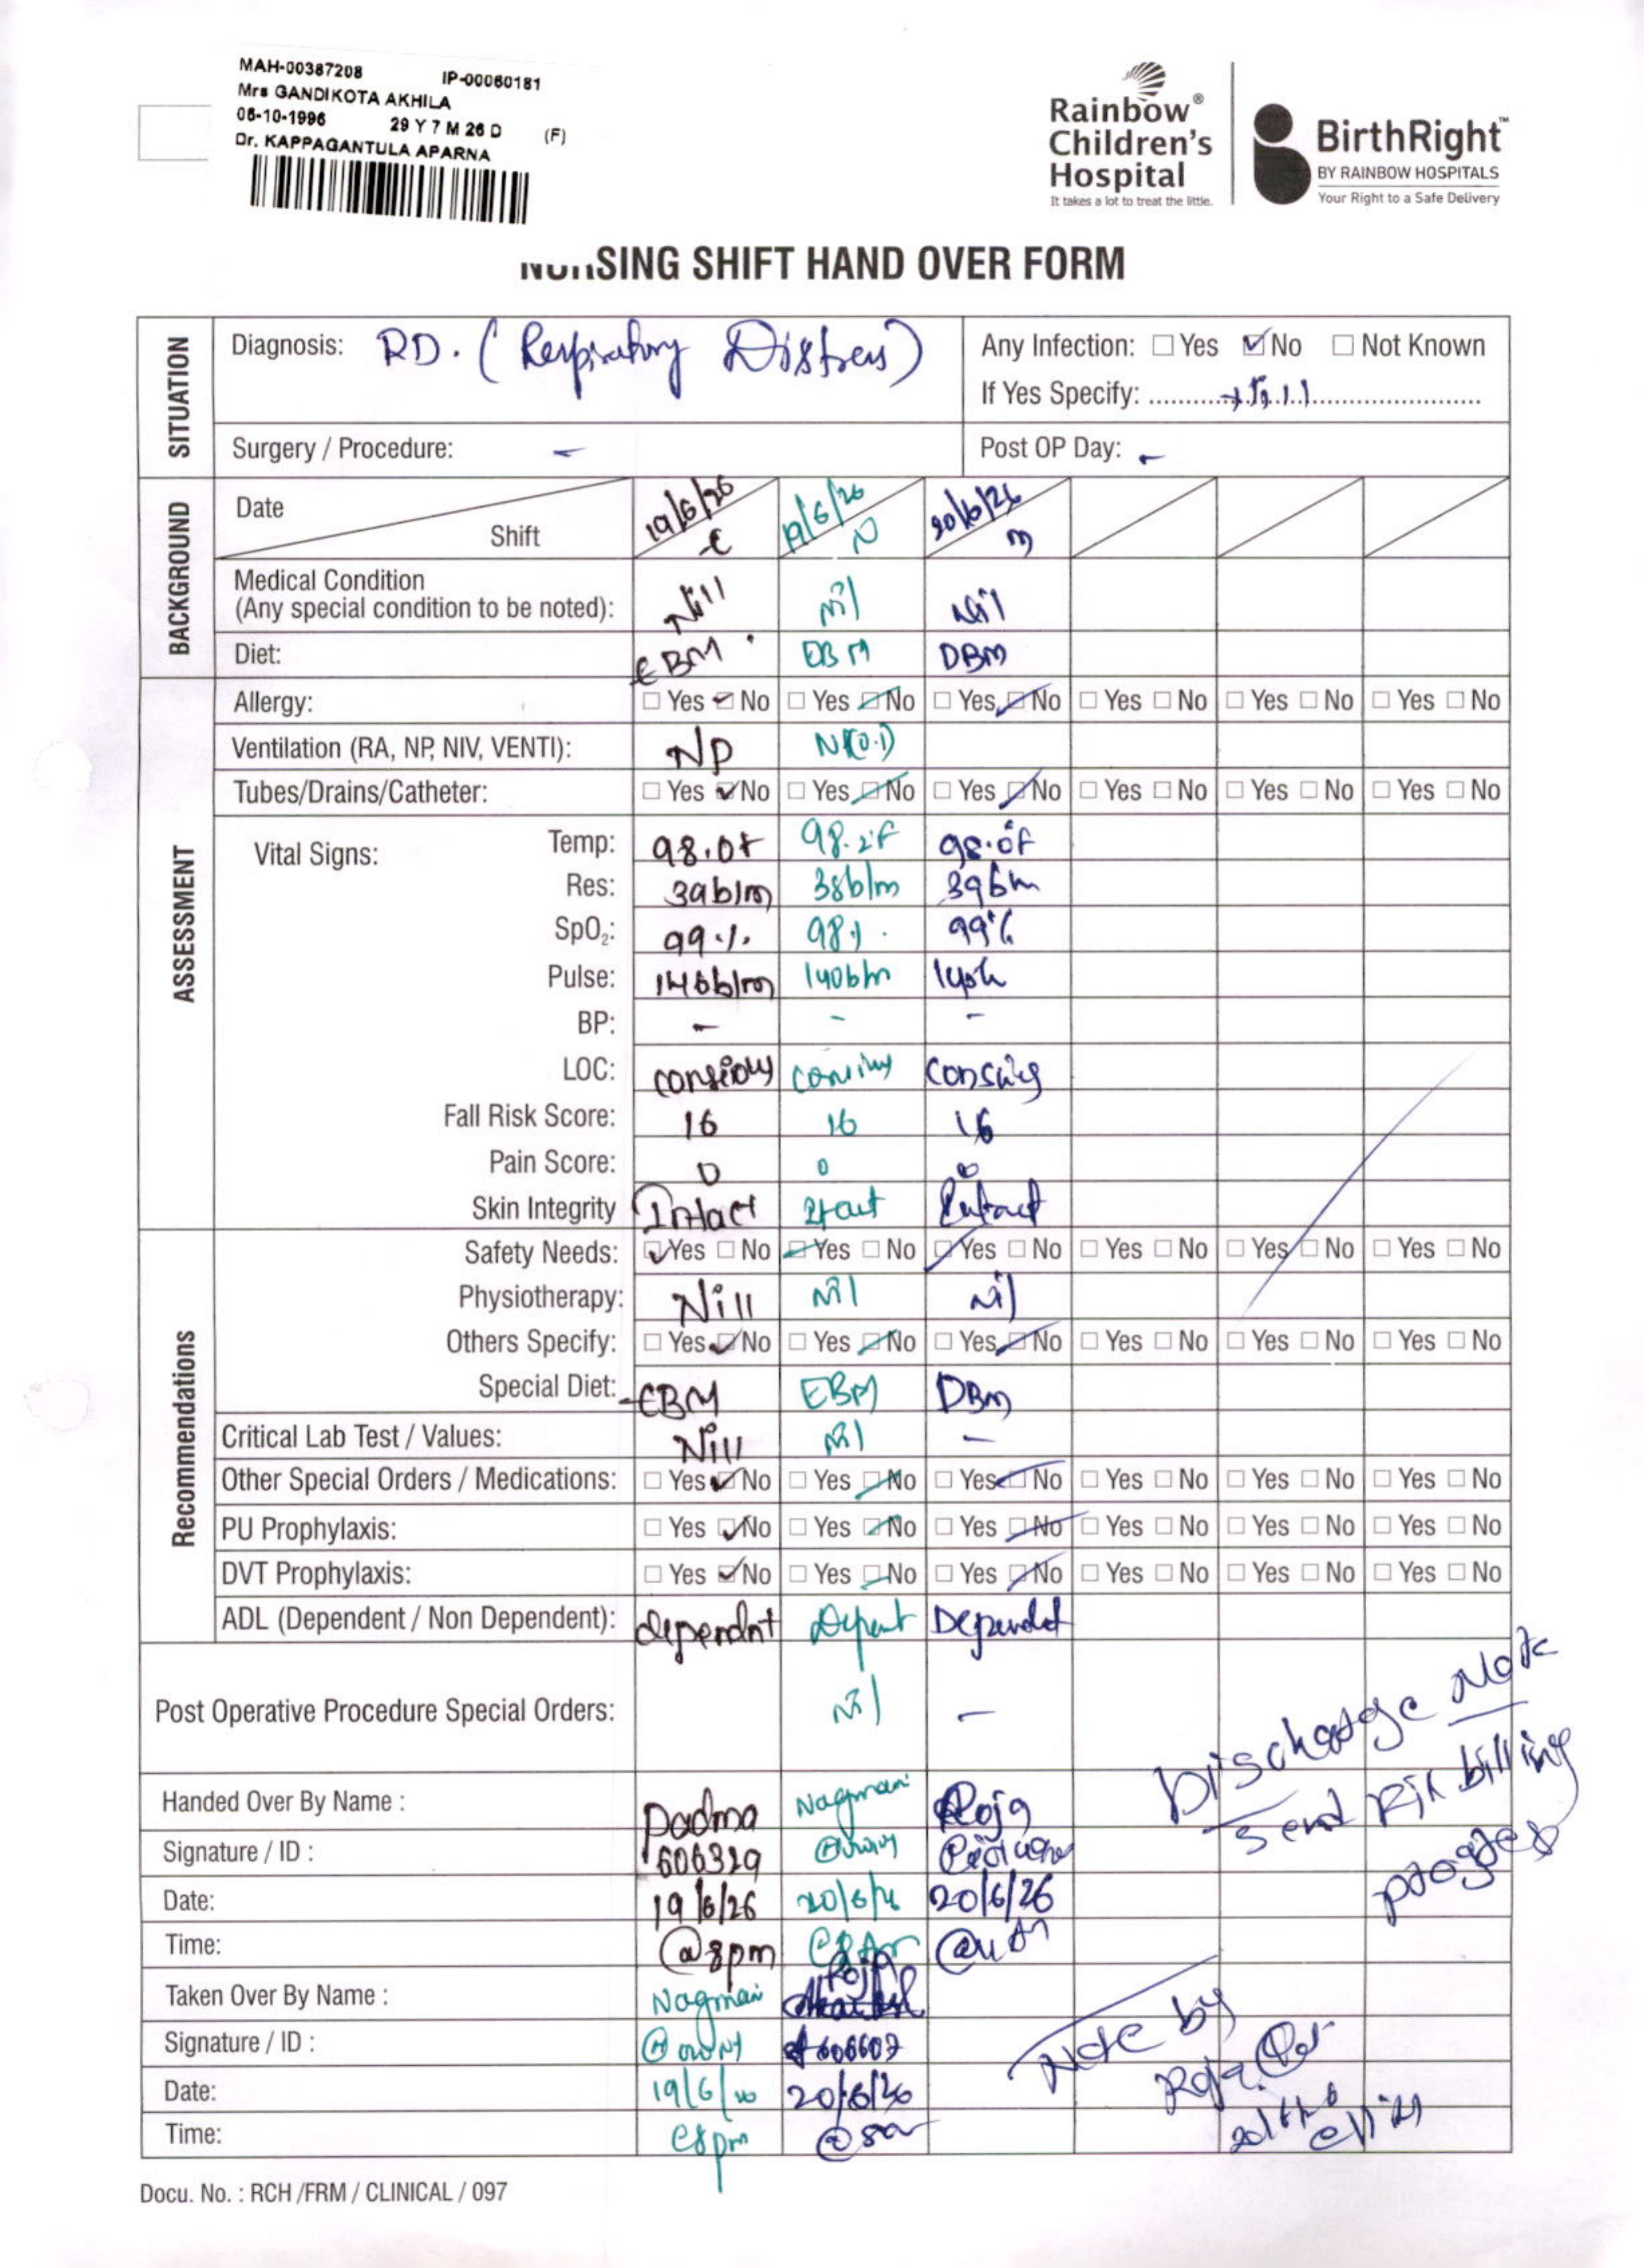 MAH-00387208 IP-00060181
Mrs GANDIKOTA AKHILA
06-10-1996 29 Y 7 M 26 D (F)
Dr. KAPPAGANTULA APARNA
Rainbow® Children's Hospital
It takes a lot to treat the little.
BirthRight™
BY RAINBOW HOSPITALS
Your Right to a Safe Delivery
NURSING SHIFT HAND OVER FORM
SITUATION
Diagnosis: RD. (Respiratory Distress)
Any Infection: ☐ Yes ☑ No ☐ Not Known
If Yes Specify: ..........
Surgery / Procedure: -
Post OP Day: -
BACKGROUND
Date 19/6/26 19/6/26 20/6/26
Shift E N M
Medical Condition
(Any special condition to be noted): Nill Nil Nil
Diet: EBM EBM DBM
ASSESSMENT
Allergy: ☐ Yes ☑ No ☐ Yes ☑ No ☐ Yes ☑ No ☐ Yes ☐ No ☐ Yes ☐ No ☐ Yes ☐ No
Ventilation (RA, NP, NIV, VENTI): NP NP(0.1)
Tubes/Drains/Catheter: ☐ Yes ☑ No ☐ Yes ☑ No ☐ Yes ☑ No ☐ Yes ☐ No ☐ Yes ☐ No ☐ Yes ☐ No
Vital Signs: Temp: 98.0f 98.2f 98.0f
Res: 39b/m 38b/m 39bm
SpO₂: 99% 98% 99%
Pulse: 146b/m 140bm
BP: - - -
LOC: consious
Fall Risk Score: 16 16 16
Pain Score: 0 0 0
Skin Integrity Intact Intact Intact
Recommendations
Safety Needs: ☑ Yes ☐ No ☑ Yes ☐ No ☑ Yes ☐ No ☐ Yes ☐ No ☐ Yes ☐ No ☐ Yes ☐ No
Physiotherapy: Nill Nil Nil
Others Specify: ☐ Yes ☑ No ☐ Yes ☑ No ☐ Yes ☑ No ☐ Yes ☐ No ☐ Yes ☐ No ☐ Yes ☐ No
Special Diet: EBM EBM DBM
Critical Lab Test / Values: Nill Nil -
Other Special Orders / Medications: ☐ Yes ☑ No ☐ Yes ☑ No ☐ Yes ☑ No ☐ Yes ☐ No ☐ Yes ☐ No ☐ Yes ☐ No
PU Prophylaxis: ☐ Yes ☑ No ☐ Yes ☑ No ☐ Yes ☑ No ☐ Yes ☐ No ☐ Yes ☐ No ☐ Yes ☐ No
DVT Prophylaxis: ☐ Yes ☑ No ☐ Yes ☑ No ☐ Yes ☑ No ☐ Yes ☐ No ☐ Yes ☐ No ☐ Yes ☐ No
ADL (Dependent / Non Dependent): dependnt
Post Operative Procedure Special Orders: Nil -
Discharge Note
send
billing
Handed Over By Name : Padma Nagmani Roja
Signature / ID : 606329
Date: 19/6/26 20/6/26 20/6/26
Time: @8pm
Taken Over By Name : Nagmani Roja
Signature / ID : 606607
Date: 19/6/26 20/6/26
Time: @8pm
Note by
Roja
Docu. No. : RCH /FRM / CLINICAL / 097